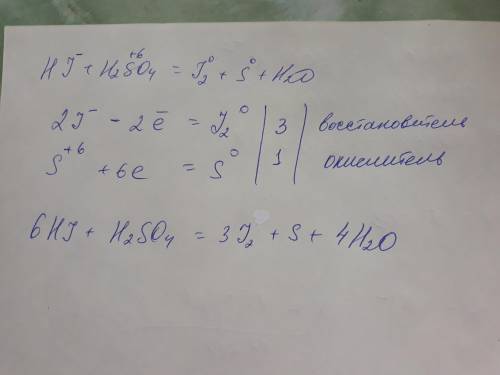 HJ⁻ + H₂S⁺⁶O₄ = J₂⁰ + S⁰ + H₂O
2J⁻ - 2ē = J₂⁰ | 3 | восстановитель
S⁺⁶ + 6e = S⁰ | 1 | окислитель
6HJ + H₂SO₄ = 3J₂ + S + 4H₂O